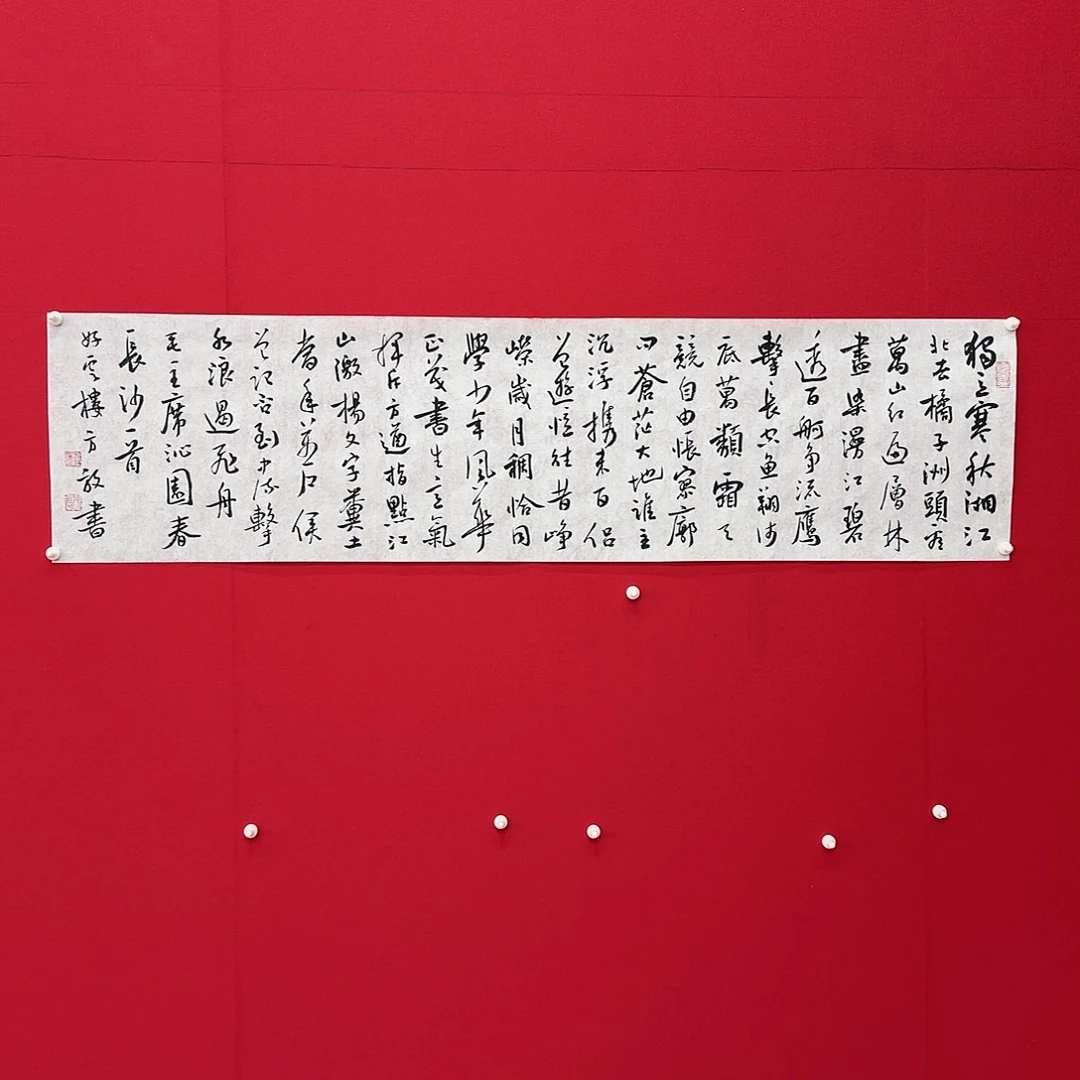 獨立寒秋湘江
北去橘子洲頭看
萬山紅遍層林
盡染漫江碧
透百舸爭流鷹
擊長空魚翔淺
底萬類霜天
競自由悵寥廓
問蒼茫大地誰主
沉浮攜來百侶
曾遊憶往昔崢
嶸歲月稠恰同
學少年風華
正茂書生意氣
揮斥方遒指點江
山激揚文字糞土
當年萬戶侯
曾記否到中流擊
水浪遏飛舟
毛主席沁園春
長沙一首
好雲樓方敦書